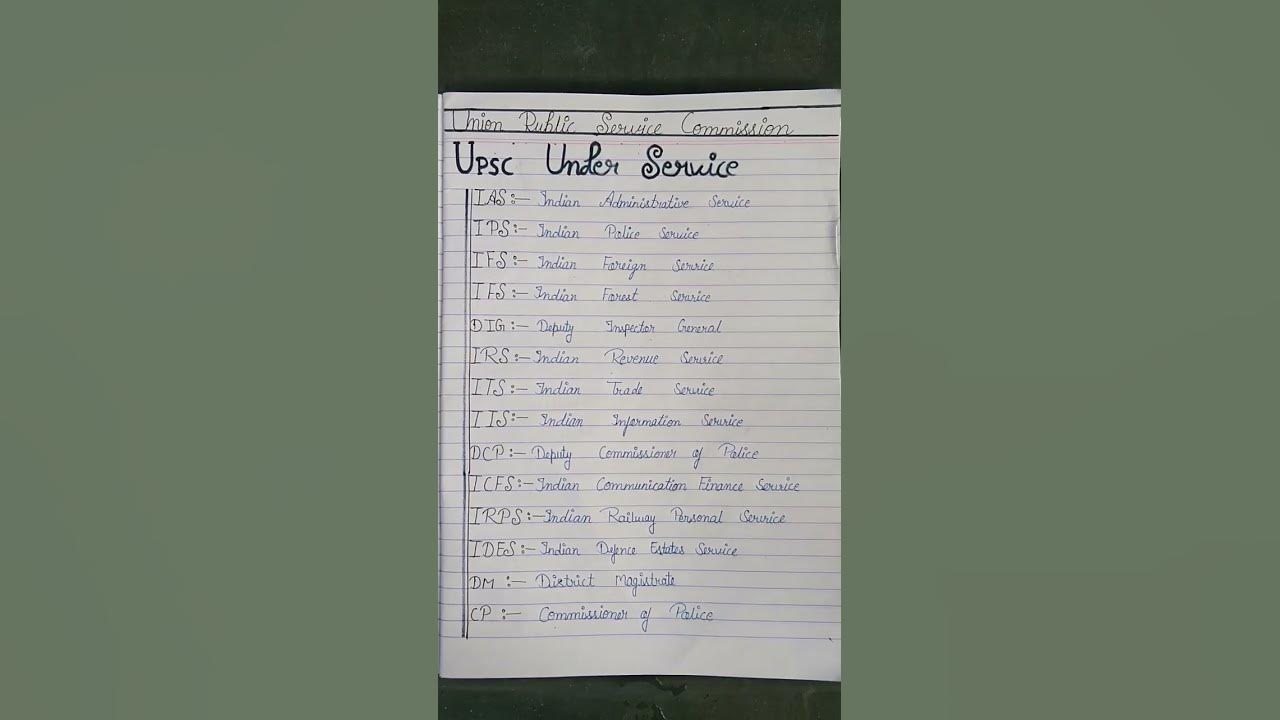 Union Public Service Commission
UPSC Under Service
IAS:- Indian Administrative Service
IPS:- Indian Police Service
IFS:- Indian Foreign Service
IFS:- Indian Forest Service
DIG:- Deputy Inspector General
IRS:- Indian Revenue Service
ITS:- Indian Trade Service
IIS:- Indian Information Service
DCP:- Deputy Commissioner of Police
ICFS:- Indian Communication Finance Service
IRPS:- Indian Railway Personal Service
IDES:- Indian Defence Estates Service
DM:- District Magistrate
CP:- Commissioner of Police